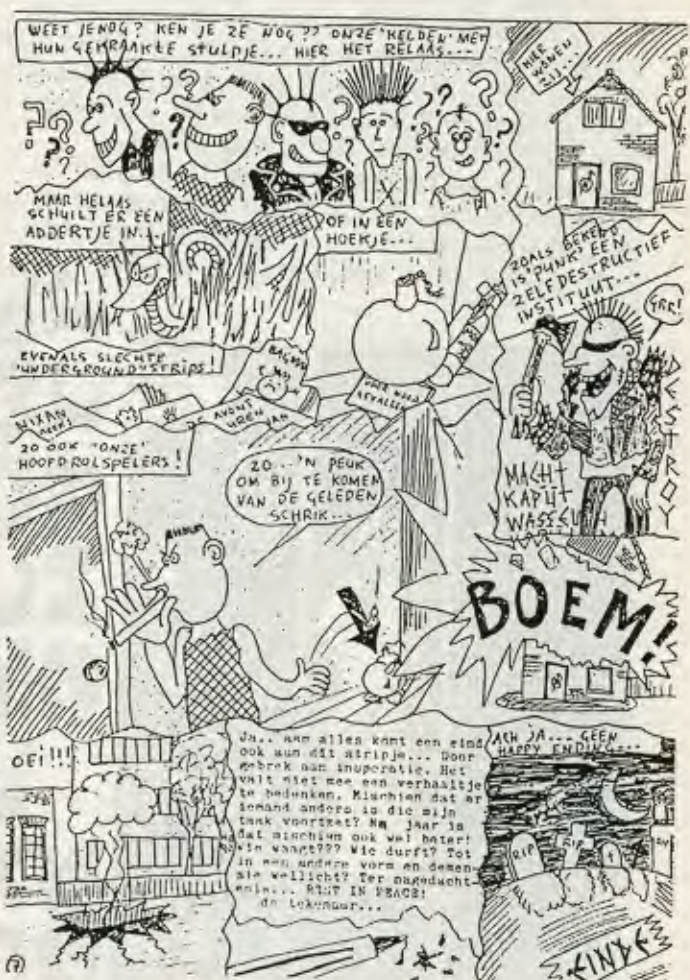 WEET JE NOG? KEN JE ZE NOG?? ONZE 'HELDEN' MET
HUN GEKRAAKTE STULPJE... HIER HET RELAAS...
HIER
WONEN
ZIJ...
MAAR HELAAS
SCHUILT ER EEN
ADDERTJE IN...
OF IN EEN
HOEKJE...
ZOALS BEKEND
IS 'PUNK' EEN
ZELFDESTRUCTIEF
INSTITUUT...
GRR!
DESTROY
MACHT
KAPUT
WASS
EVENALS SLECHTE
'UNDERGROUND' STRIPS!
NIXAN
DE AVONT
UREN
JAN
ZO OOK 'ONZE'
HOOFDROLSPELERS!
ZO...'N PEUK
OM BIJ TE KOMEN
VAN DE GELEDEN
SCHRIK...
BOEM!
OEI!!!
Ja.. aan alles komt een eind
ook aan dit stripje... Door
gebrek aan insperatie. Het
valt niet mee een verhaaltje
te bedenken. Mischien dat er
iemand anders is die mijn
taak voortzet? Na jaar is
dat mischien ook wel beter!
Wie waagt??? Wie durft? Tot
in een andere vorm en demen-
sie wellicht? Ter nagedacht-
enis... REST IN PEACE!
de tekenaar...
ACH JA... GEEN
HAPPY ENDING...
RIP
RIP
EINDE
7